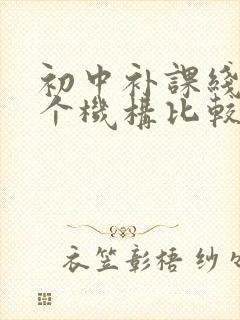 初中补課綫
个機構比較
衣笠彰梧 纱